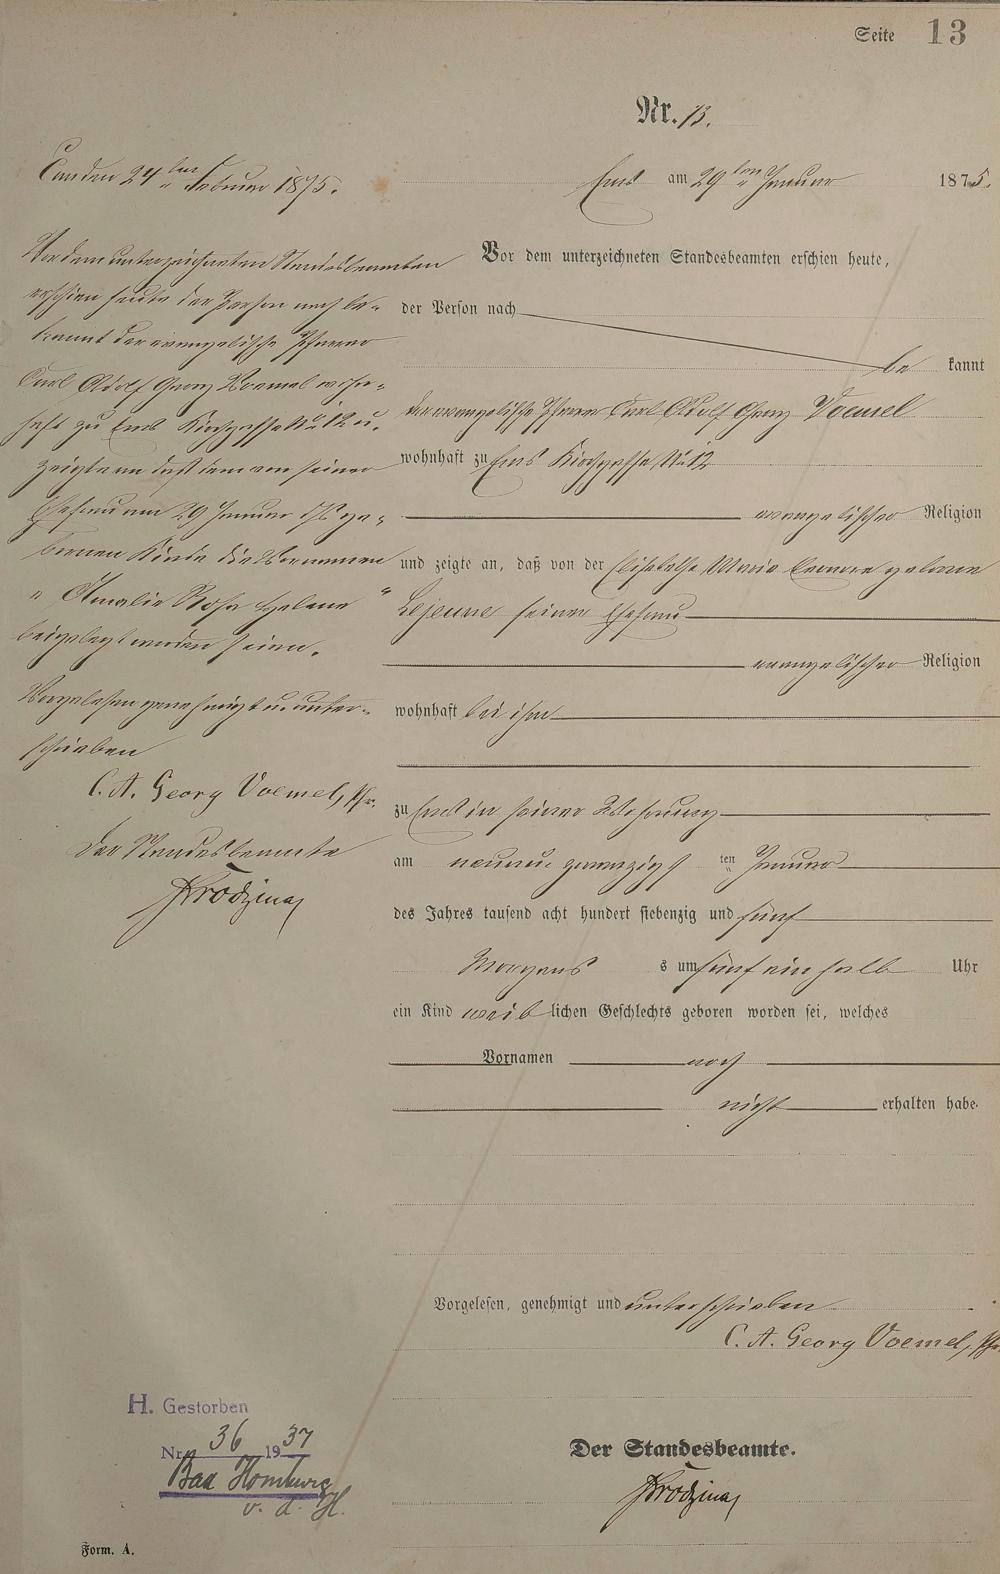 Seite 13
Nr. 13.
Ems am 29ten Januar 1875.
Vor dem unterzeichneten Standesbeamten erschien heute,
der Person nach
be kannt
der evangelische Pfarrer Carl Adolf Georg Voemel
wohnhaft zu Ems Kirchgasse No 12
evangelischer Religion
und zeigte an, daß von der Elisabetha Maria Leonore geborne
Lejeune seiner Ehefrau
evangelischer Religion
wohnhaft bei ihm
zu Ems in seiner Wohnung
am neun u. zwanzigst ten Januar
des Jahres tausend acht hundert siebenzig und fünf
Morgens s um fünf ein halb Uhr
ein Kind weib lichen Geschlechts geboren worden sei, welches
Vornamen noch
nicht erhalten habe.
Vorgelesen, genehmigt und unterschrieben
C. A. Georg Voemel, Pfr.
Der Standesbeamte.
Ems den 24ten Februar 1875.
Vor dem unterzeichneten Standesbeamten
erschien heute der Person nach be-
kannt der evangelische Pfarrer
Carl Adolf Georg Voemel wohn-
haft zu Ems Kirchgasse No 12 u.
zeigte an daß dem von seiner
Ehefrau am 29 Januar ds Js ge-
bornen Kinde die Vornamen
"Amalie Rosa Helene"
beigelegt worden seien.
Vorgelesen genehmigt u. unter-
schrieben
C. A. Georg Voemel, Pfr.
Der Standesbeamte
H. Gestorben
Nr. 36 1937
Bad Homburg
v. d. H.
Form. A.